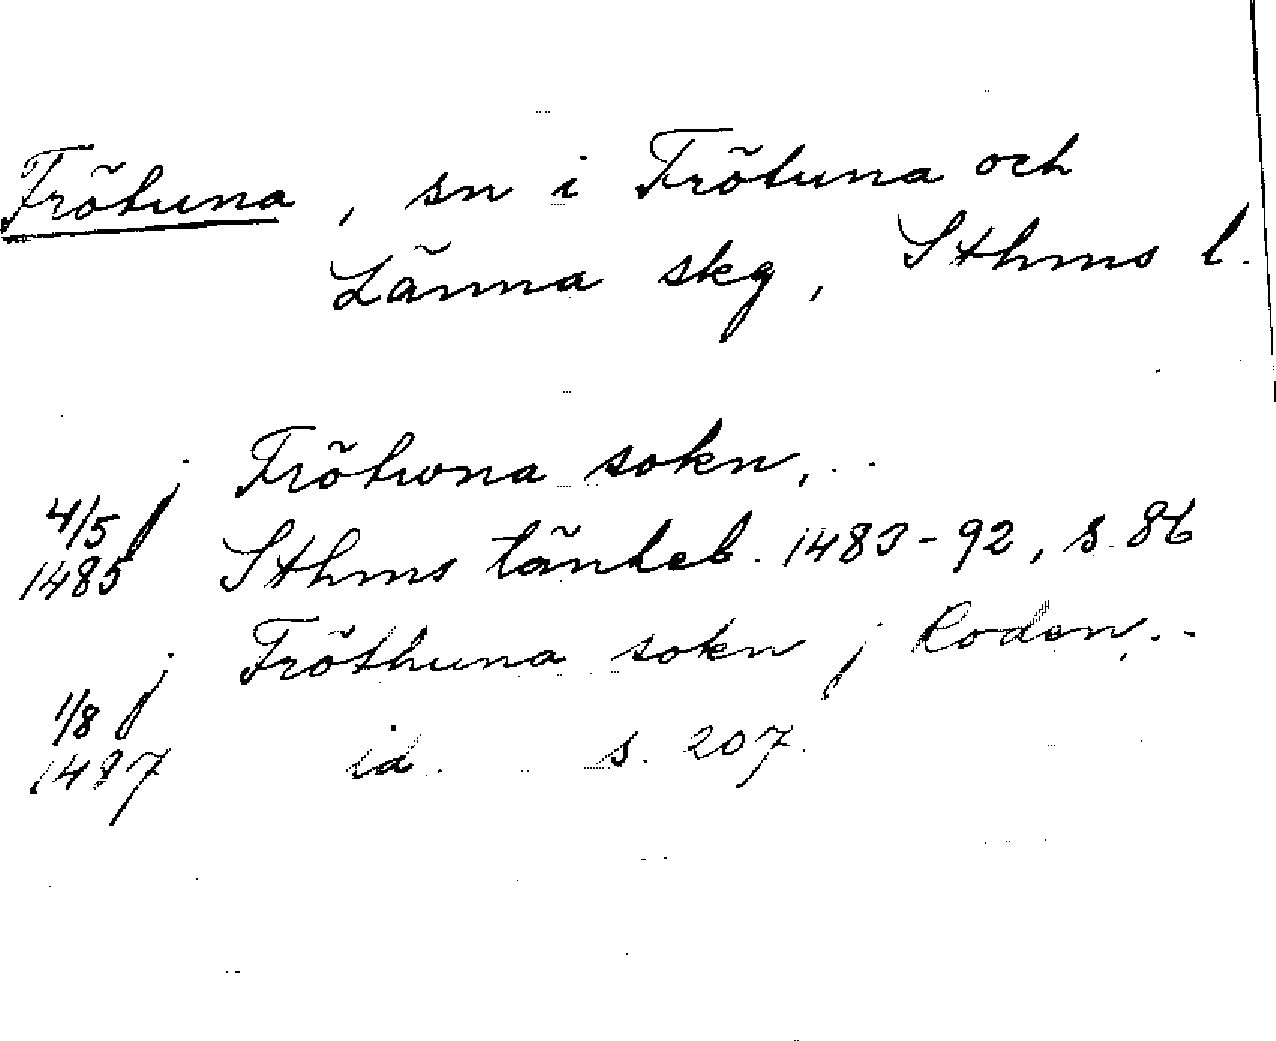 Frötuna, sn i Frötuna och
Länna skg, Sthms l.
j Frötwna sokn,..
4/5
1485 Sthms tänkeb. 1483-92, s. 86
j Fröthuna sokn j Roden,..
1/8
1487 id. s. 207.